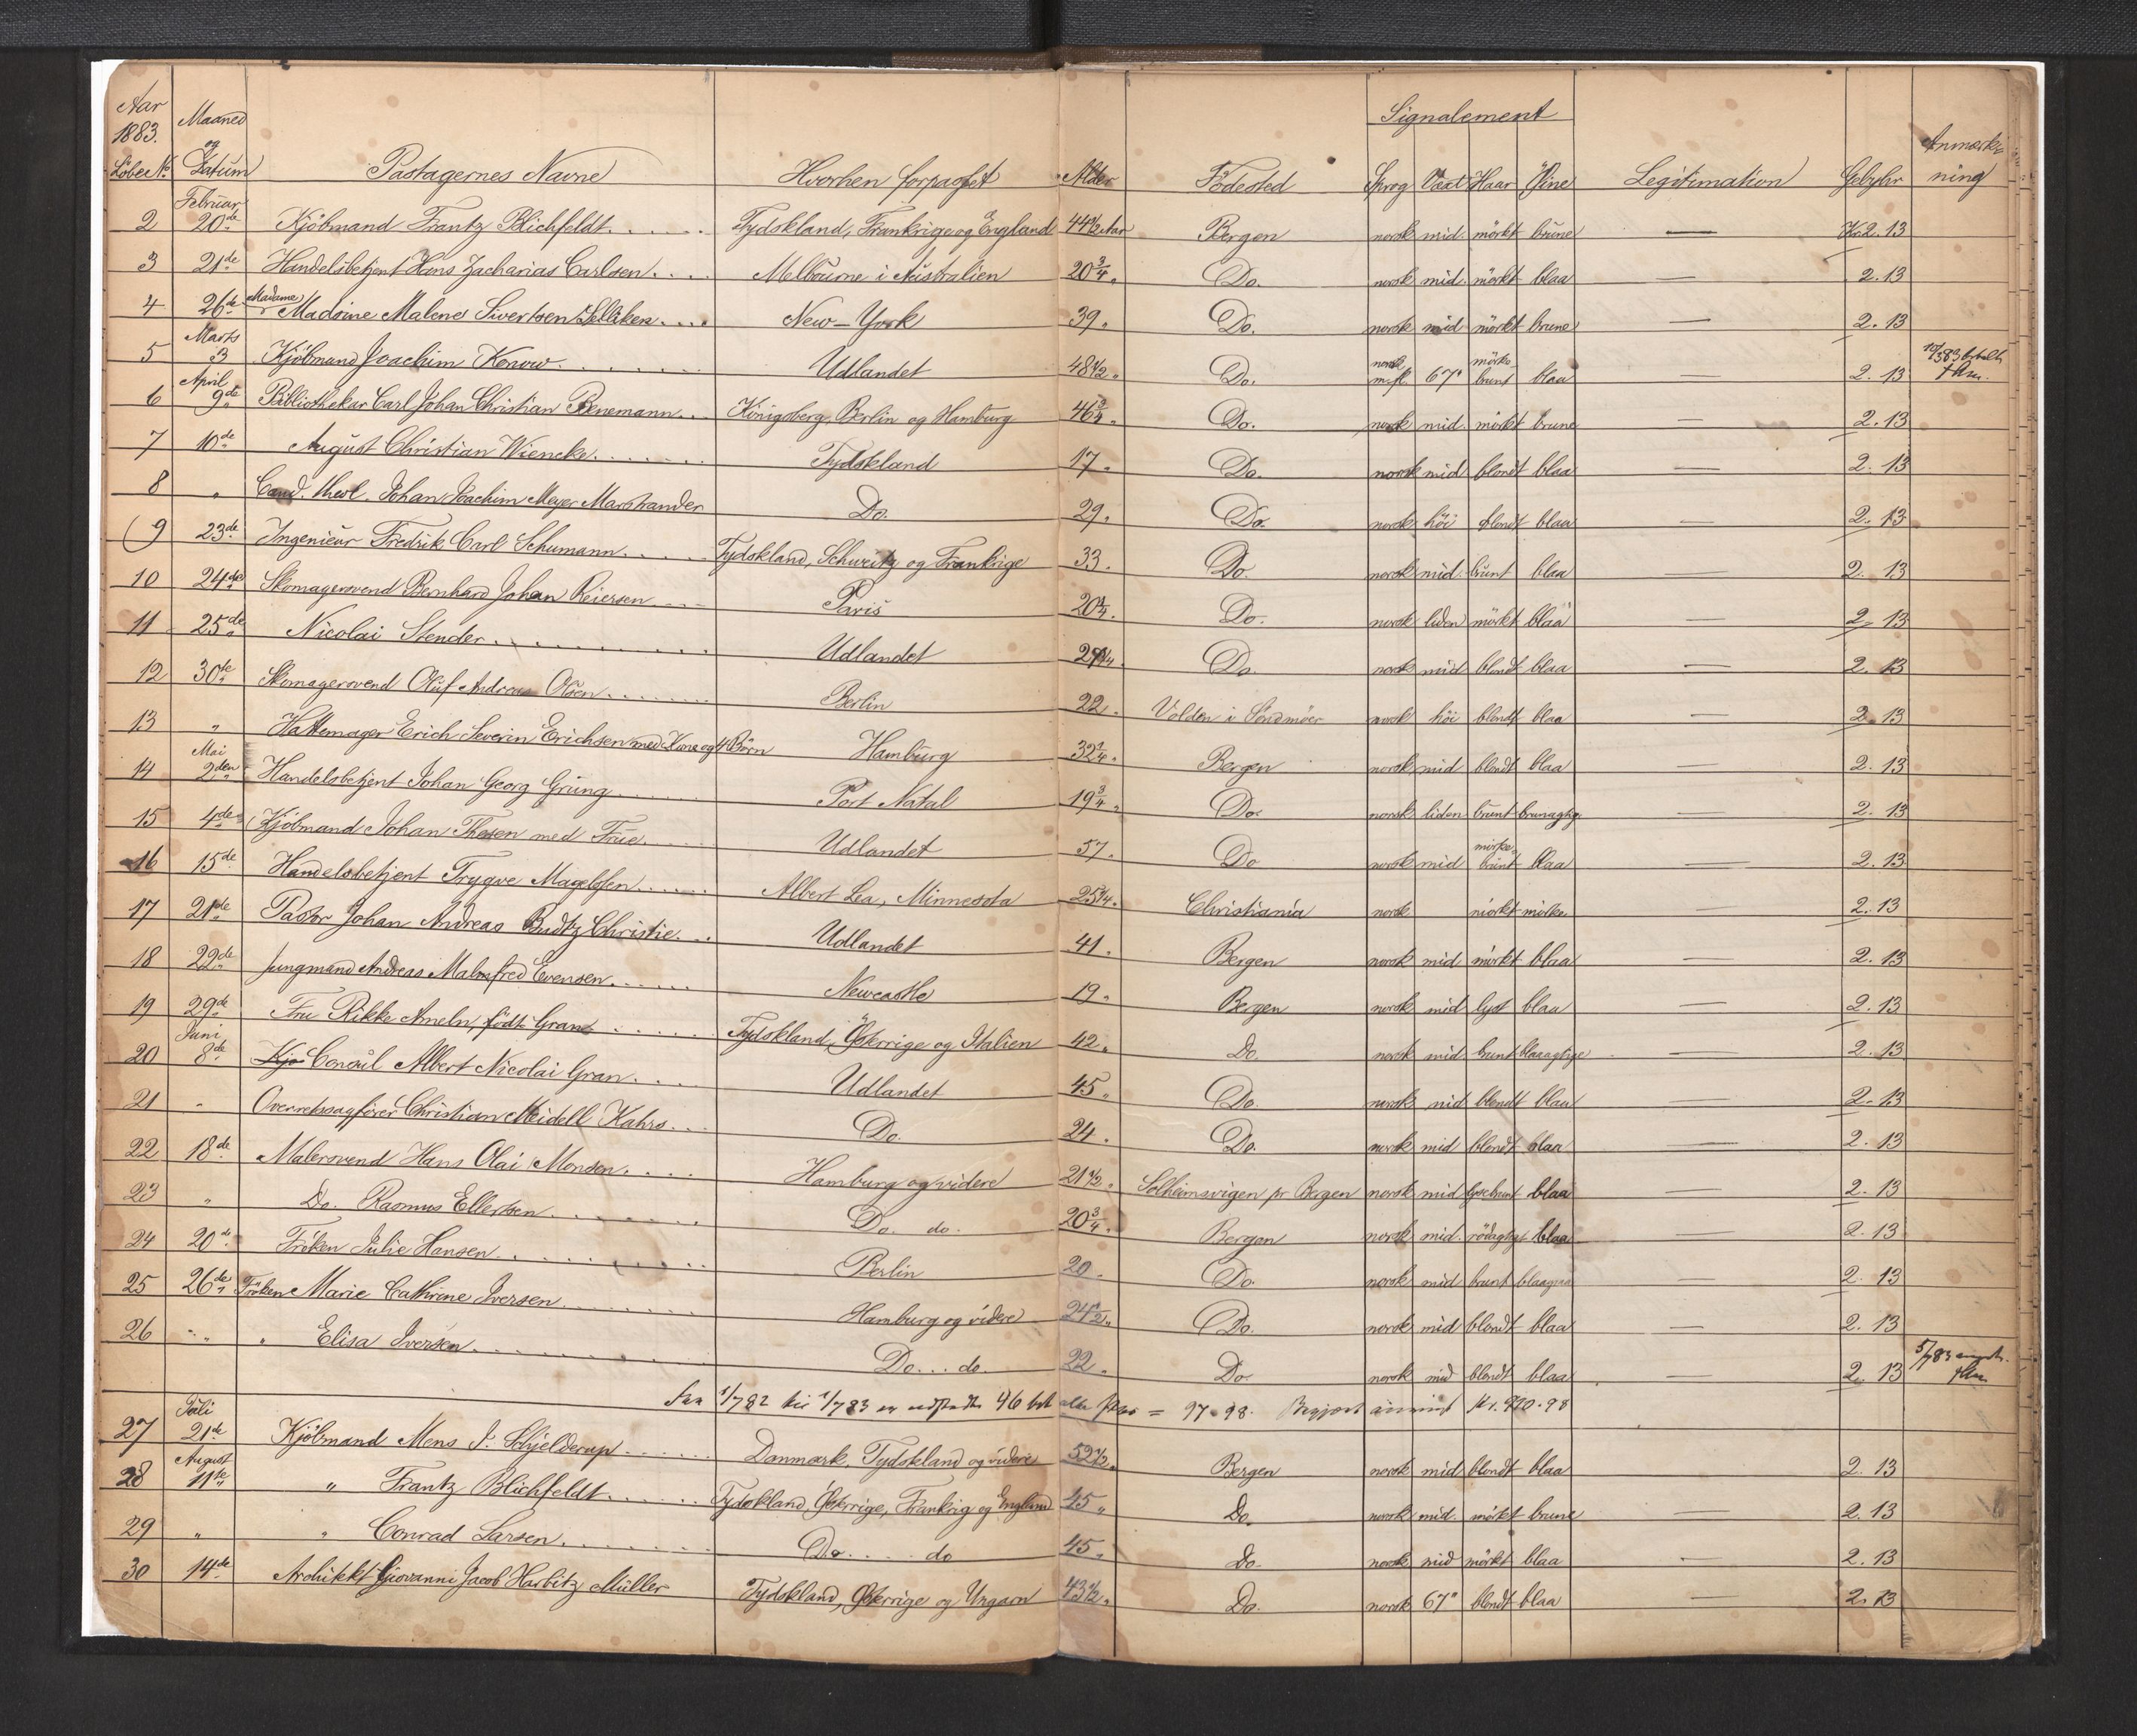 Aar 1883. Löbe No. Maaned og Datum Passagernes Navne Hvorhen forpasset Alder Födested Signalement Sprog Væxt Haar Öine Legitimation Gebyhr Anmærkning
Februar
2 20de Kjöbmand Frantz Blichfeldt Tydskland, Frankrige og England 44 1/2 Aar Bergen norsk mid. mörkt brune — Kr. 2.13
3 21de Handelsbetjent Hans Zacharias Carlsen Melbourne i Australien 20 3/4 " Do. norsk mid. mörkt blaa — 2.13
4 26de Madame Madsine Malene Sivertsen New-York 39 " Do. norsk mid mörkt brune — 2.13
Marts
5 3 Kjöbmand Joachim Konow Udlandet 48 1/2 " Do. norsk m.fl. 67" mörke brunt blaa — 2.13
April
6 9de Bibliothekar Carl Johan Christian Benemann Königsberg, Berlin og Hamburg 46 3/4 " Do. norsk mid. mörkt brune — 2.13
7 10de August Christian Wiencke Tydskland 17 " Do. norsk mid blondt blaa — 2.13
8 " Cand. theol. Johan Joachim Meyer Marstrander Do. 29 " Do. norsk höi blondt blaa — 2.13
9 23de Ingenieur Fredrik Carl Schumann Tydskland, Schweitz og Frankrige 33 " Do. norsk mid. brunt blaa — 2.13
10 24de Skomagersvend Bernhard Johan Reiersen Paris 20 1/4 " Do. norsk liden mörkt blaa — 2.13
11 25de Nicolai Stender Udlandet Do. norsk mid blondt blaa — 2.13
12 30te Skomagersvend Oluf Andreas Olsen Berlin 22 " Volden i Söndmöer norsk höi blondt blaa — 2.13
13 " Hattemager Erich Severin Erichsen med Kone og 4 Börn Hamburg 32 1/4 " Bergen norsk mid blondt blaa — 2.13
Mai
14 2den Handelsbetjent Johan Georg Grung Port Natal 19 3/4 " Do. norsk liden brunt brunagtig. — 2.13
15 4de Kjöbmand Johan Thesen med Frue Udlandet 57 " Do norsk mid mörke brunt blaa — 2.13
16 15de Handelsbetjent Trygve Magelssen Albert Lea, Minnesota 25 1/4 " Christiania norsk mörkt mörke — 2.13
17 21de Pastor Johan Andreas Budtz Christie Udlandet 41 " Bergen norsk mid mörkt blaa — 2.13
18 22de Jungmand Andreas Malmfred Evensen Newcastle 19 " Bergen norsk mid lyst blaa — 2.13
19 29de Fru Rikke Ameln, födt Gran Tydskland, Österrige og Italien 42 " Do. norsk mid brunt blaaagtige — 2.13
Juni
20 8de Consul Albert Nicolai Gran Udlandet 45 " Do. norsk mid blondt blaa — 2.13
21 " Overretssagförer Christian Meidell Kahrs Do. 24 " Do. norsk mid blondt blaa — 2.13
22 18de Malersvend Hans Olai Monsen Hamburg og videre 21 1/2 " Solheimsvigen pr Bergen norsk mid lysebrunt blaa — 2.13
23 " Do. Rasmus Ellertsen Do. do. 20 3/4 " Bergen norsk mid. rödagtigt blaa — 2.13
24 20de Fröken Julie Hansen Berlin 20 " Do. norsk mid brunt blaagraa — 2.13
25 26de Fröken Marie Cathrine Iversen Hamburg og videre 24 1/2 " Do. norsk mid blondt blaa — 2.13
26 " " Elisa Iversen Do. do. 22 " Do norsk mid blondt blaa — 2.13
Fra 1/7 82 til 1/7 83 er udstedt 46 = 97.98.
Juli
27 21de Kjöbmand Mens J. Schjelderup Danmark, Tydskland og videre 52 1/2 " Bergen norsk mid blondt blaa — 2.13
August
28 11te " Frantz Blichfeldt Tydskland, Österrige, Frankrig og England 45 " Do. norsk mid. mörkt brune — 2.13
29 " " Conrad Larsen Do. do 45 " Do. norsk mid mörkt blaa — 2.13
30 14de Architekt Giovanni Jacob Harbitz Müller Tydskland, Österrige og Ungarn 43 1/2 " Do. norsk 67" blondt blaa — 2.13